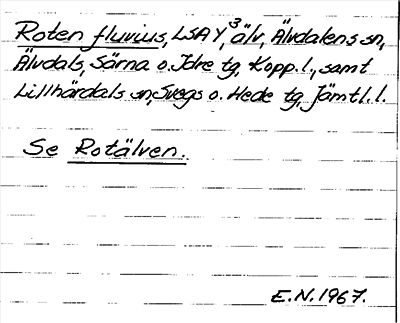 Roten fluvius, LSA Y, ³älv, Älvdalens sn,
Älvdals, Särna o. Idre tg, Kopp. l., samt
Lillhärdals sn, Svegs o. Hede tg, Jämtl. l.
Se Rotälven.
E.N. 1967.